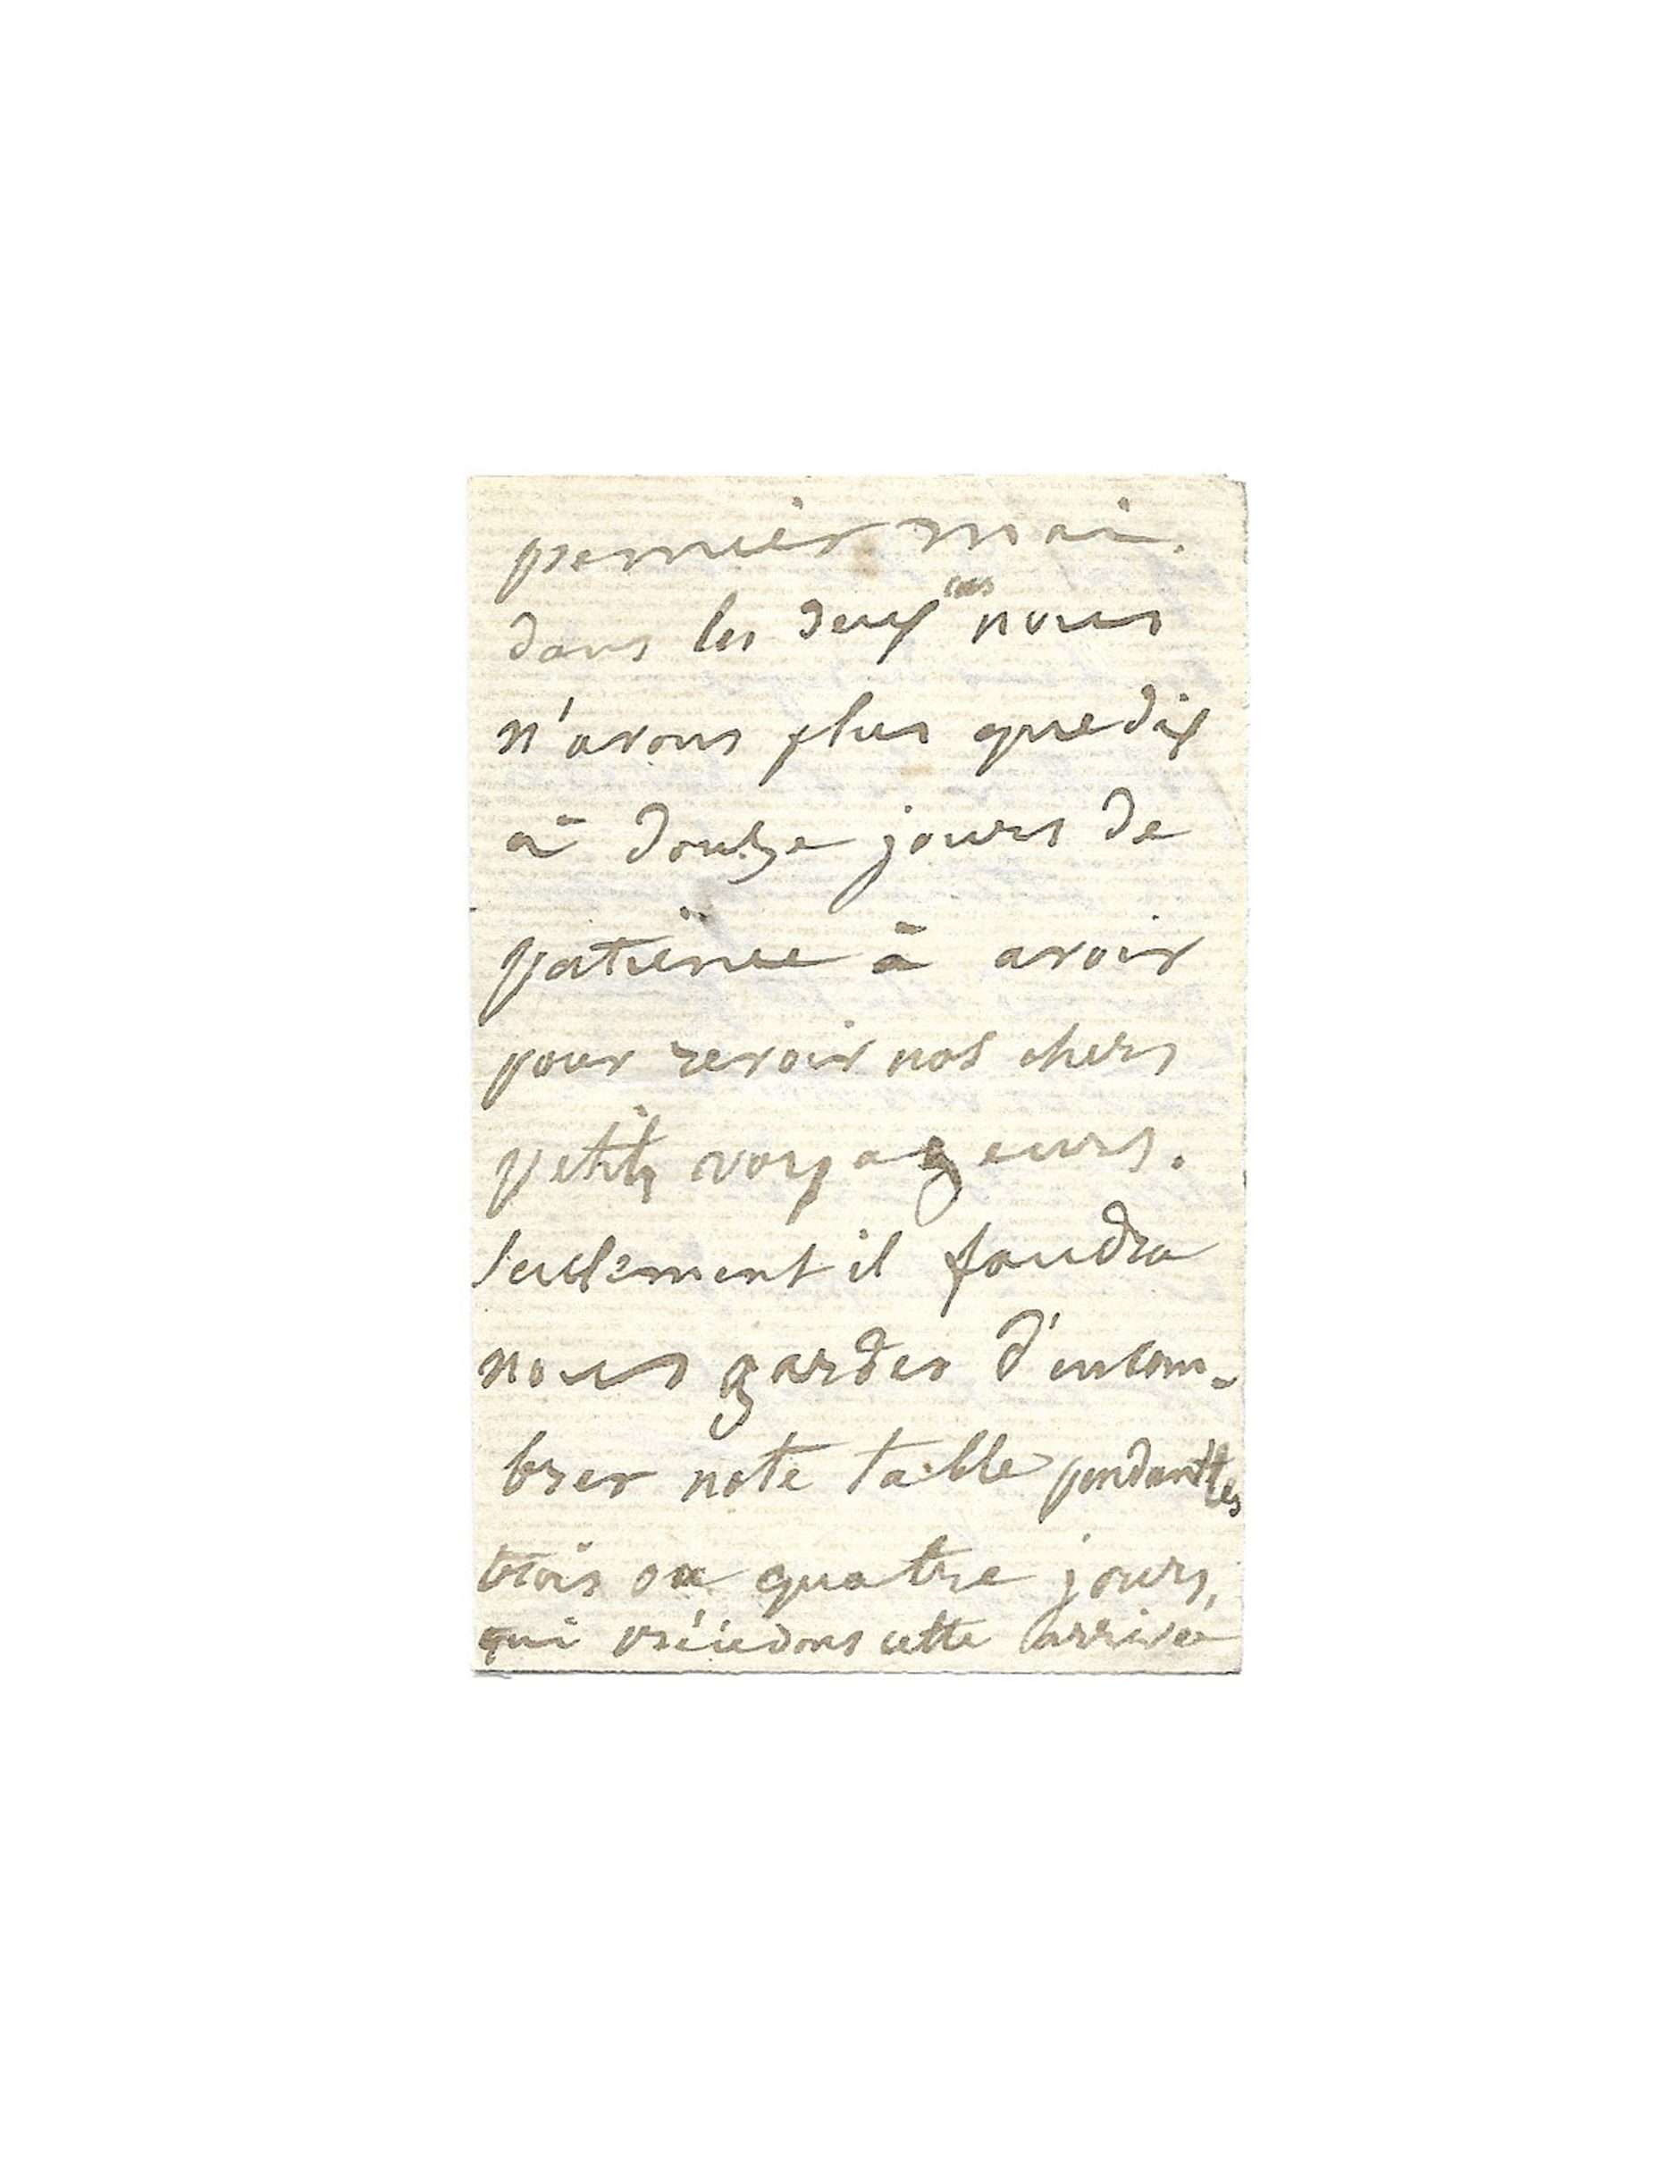 premier mai.
dans les deux cas nous
n'avons plus que dix
à douze jours de
patience à avoir
pour revoir nos chers
petits voyageurs.
seulement il faudra
nous garder d'encom-
brer note table pendant les
trois ou quatre jours,
qui précédons cette arrivée